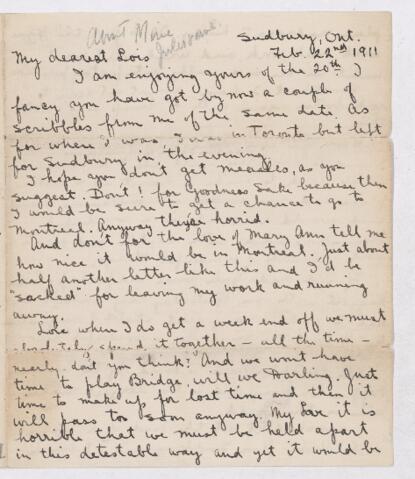 About Marie
Sudbury, Ont.
Feb. 22nd 1911
My dearest Lois
I am enjoying yours of the 20th. I
fancy you have got by now a couple of
scribbles from me of the same date. As
for where I was, I was in Toronto but left
for Sudbury in the evening.
I hope you don't get measles, as you
suggest. Don't! for goodness sake because then
I would be sure to get a chance to go to
Montreal. Anyway they're horrid.
And don't for the love of Mary Ann tell me
how nice it would be in Montreal. Just about
half another letter like this and I'd be
"sacked" for leaving my work and running
away.
Lois when I do get a week end off we must
absolutely spend it together - all the time -
nearly don't you think? And we won't have
time to play Bridge, will we Darling. Just
time to make up for lost time and then it
will pass too soon anyway. My Love it is
horrible that we must be held apart
in this detestable way and yet it would be